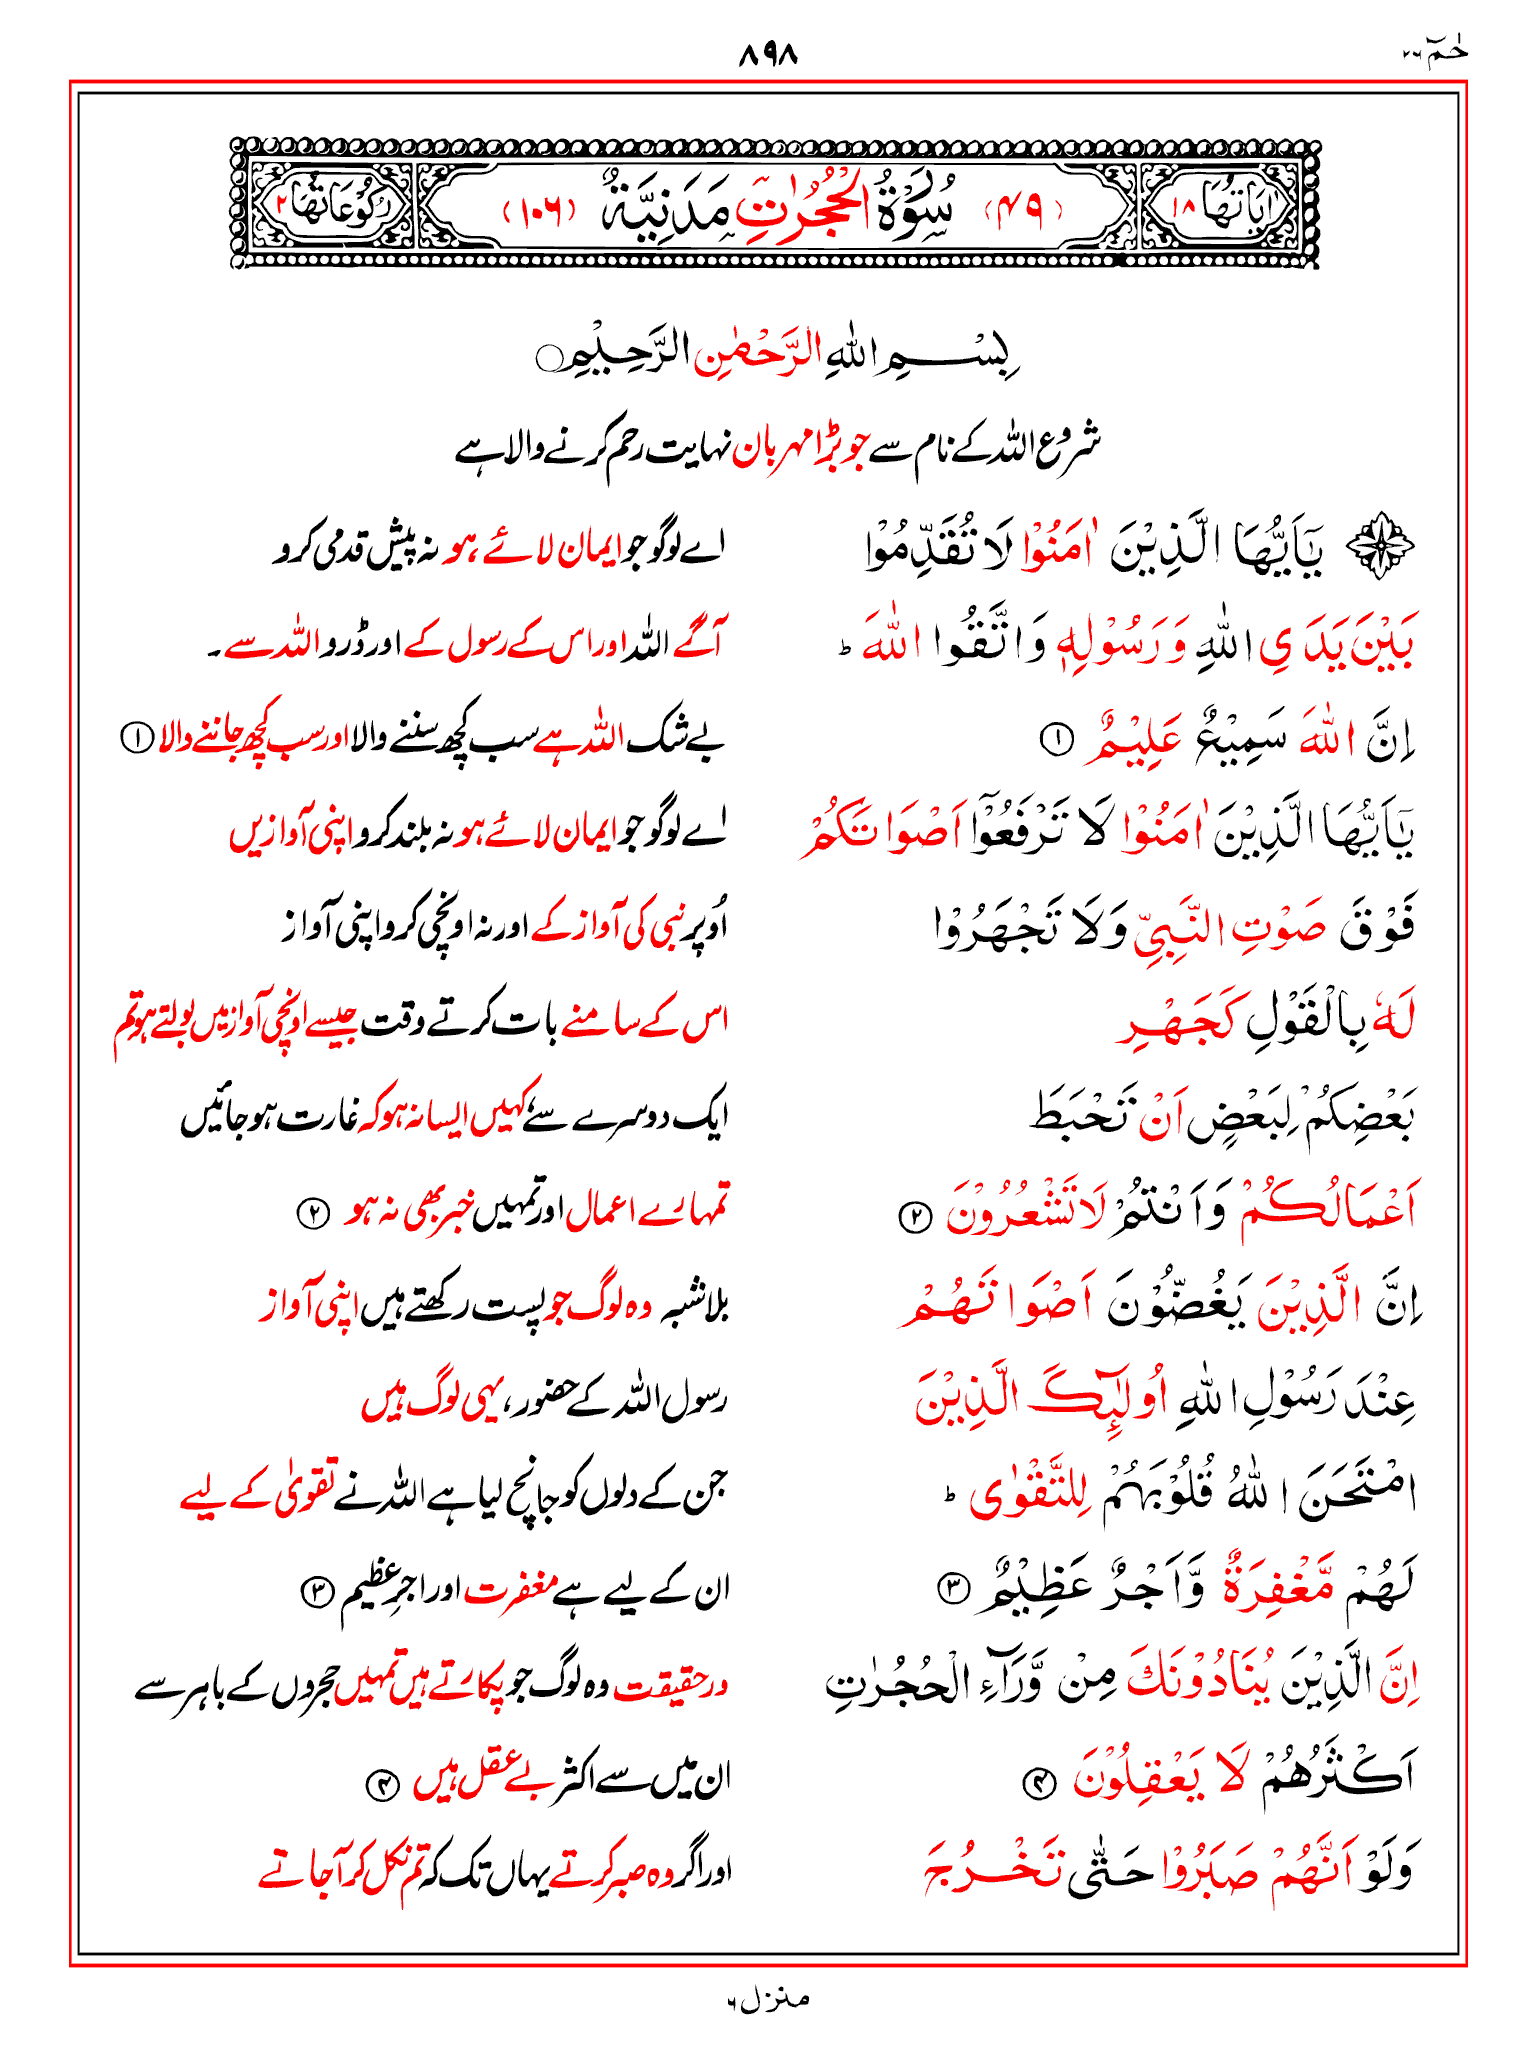 حٰمٓ ۲۶
۸۹۸
اٰیَاتُهَا ۱۸ (۴۹) سُوْرَةُ الْحُجُرٰتِ مَدَنِیَّةٌ (۱۰۶) رُكُوْعَاتُهَا ۲
بِسْمِ اللهِ الرَّحْمٰنِ الرَّحِیْمِ
شروع اللہ کے نام سے جو بڑا مہربان نہایت رحم کرنے والا ہے
یٰۤاَیُّهَا الَّذِیْنَ اٰمَنُوْا لَا تُقَدِّمُوْا اے لوگو جو ایمان لائے ہو نہ پیش قدمی کرو
بَیْنَ یَدَیِ اللهِ وَرَسُوْلِهٖ وَاتَّقُوا اللهَ ؕ آگے اللہ اور اس کے رسول کے اور ڈرو اللہ سے۔
اِنَّ اللهَ سَمِیْعٌ عَلِیْمٌ ۱ بے شک اللہ ہے سب کچھ سننے والا اور سب کچھ جاننے والا ۱
یٰۤاَیُّهَا الَّذِیْنَ اٰمَنُوْا لَا تَرْفَعُوْۤا اَصْوَاتَكُمْ اے لوگو جو ایمان لائے ہو نہ بلند کرو اپنی آوازیں
فَوْقَ صَوْتِ النَّبِیِّ وَلَا تَجْهَرُوْا اُوپر نبی کی آواز کے اور نہ اونچی کرو اپنی آواز
لَهٗ بِالْقَوْلِ كَجَهْرِ اس کے سامنے بات کرتے وقت جیسے اونچی آواز میں بولتے ہو تم
بَعْضِكُمْ لِبَعْضٍ اَنْ تَحْبَطَ ایک دوسرے سے، کہیں ایسا نہ ہو کہ غارت ہو جائیں
اَعْمَالُكُمْ وَاَنْتُمْ لَا تَشْعُرُوْنَ ۲ تمہارے اعمال اور تمہیں خبر بھی نہ ہو ۲
اِنَّ الَّذِیْنَ یَغُضُّوْنَ اَصْوَاتَهُمْ بلاشبہ وہ لوگ جو پست رکھتے ہیں اپنی آواز
عِنْدَ رَسُوْلِ اللهِ اُولٰٓئِكَ الَّذِیْنَ رسول اللہ کے حضور، یہی لوگ ہیں
امْتَحَنَ اللهُ قُلُوْبَهُمْ لِلتَّقْوٰی ؕ جن کے دلوں کو جانچ لیا ہے اللہ نے تقویٰ کے لیے
لَهُمْ مَّغْفِرَةٌ وَّاَجْرٌ عَظِیْمٌ ۳ ان کے لیے ہے مغفرت اور اجرِ عظیم ۳
اِنَّ الَّذِیْنَ یُنَادُوْنَكَ مِنْ وَّرَآءِ الْحُجُرٰتِ درحقیقت وہ لوگ جو پکارتے ہیں تمہیں حجروں کے باہر سے
اَكْثَرُهُمْ لَا یَعْقِلُوْنَ ۴ ان میں سے اکثر بے عقل ہیں ۴
وَلَوْ اَنَّهُمْ صَبَرُوْا حَتّٰی تَخْرُجَ اور اگر وہ صبر کرتے یہاں تک کہ تم نکل کر آ جاتے
منزل ۶